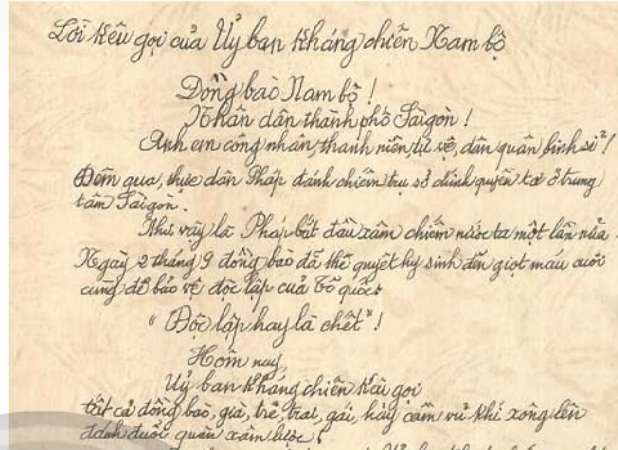 Lời kêu gọi của Uỷ ban kháng chiến Nam bộ
Đồng bào Nam bộ !
Nhân dân thành phố Sàigòn !
Anh em công nhân, thanh niên, tự vệ, dân quân, binh sĩ !
Đêm qua, thực dân Pháp đánh chiếm trụ sở chính quyền ta ở trung
tâm Sàigòn.
Như vậy là Pháp bắt đầu xâm chiếm nước ta một lần nữa.
Ngày 2 tháng 9 đồng bào đã thề quyết hy sinh đến giọt máu cuối
cùng để bảo vệ độc lập của Tổ quốc:
"Độc lập hay là chết" !
Hôm nay,
Uỷ ban kháng chiến kêu gọi
tất cả đồng bào, già, trẻ, trai, gái, hãy cầm vũ khí xông lên
đánh đuổi quân xâm lược.